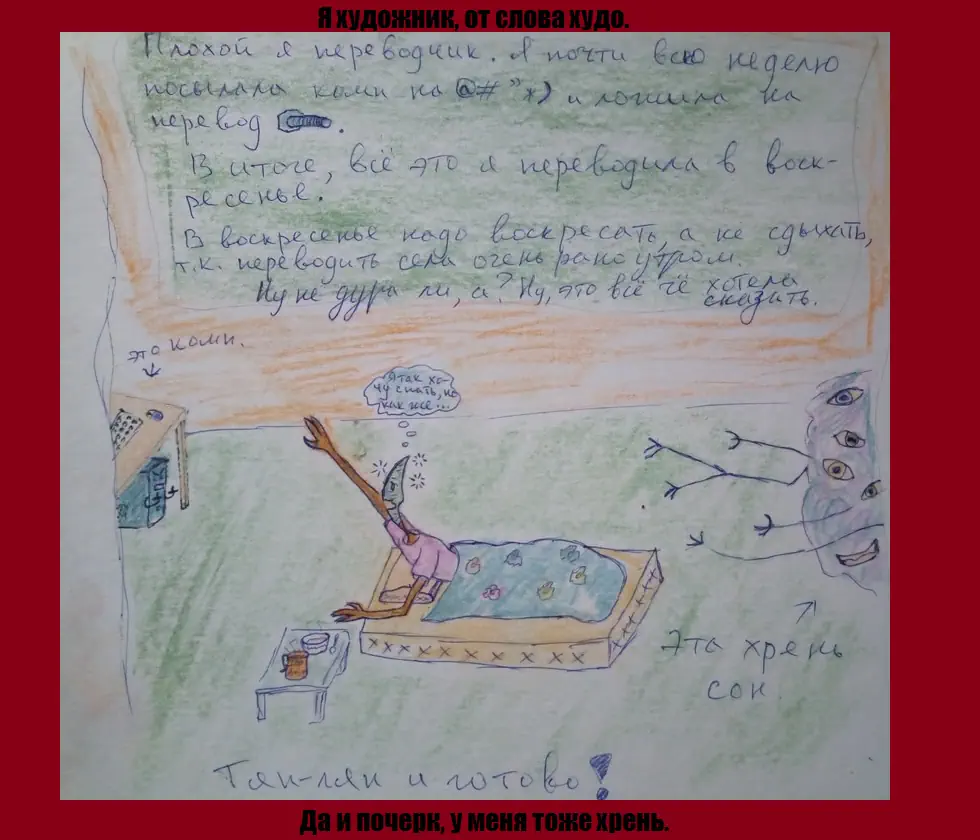 Я художник, от слова худо.
Плохой я переводчик. Я почти всю неделю
посылала комп на @# "*) и ложила на
перевод
В итоге, всё это я переводила в воск-
ресенье.
В воскресенье надо воскресать, а не сдыхать,
т.к. переводить села очень рано утром.
Ну не дура ли, а? Ну, это всё чё хотела
сказать.
это комп.
Я так хо-
чу спать, но
как же...
Эта хрень
сон
Тяп-ляп и готово!
Да и почерк, у меня тоже хрень.